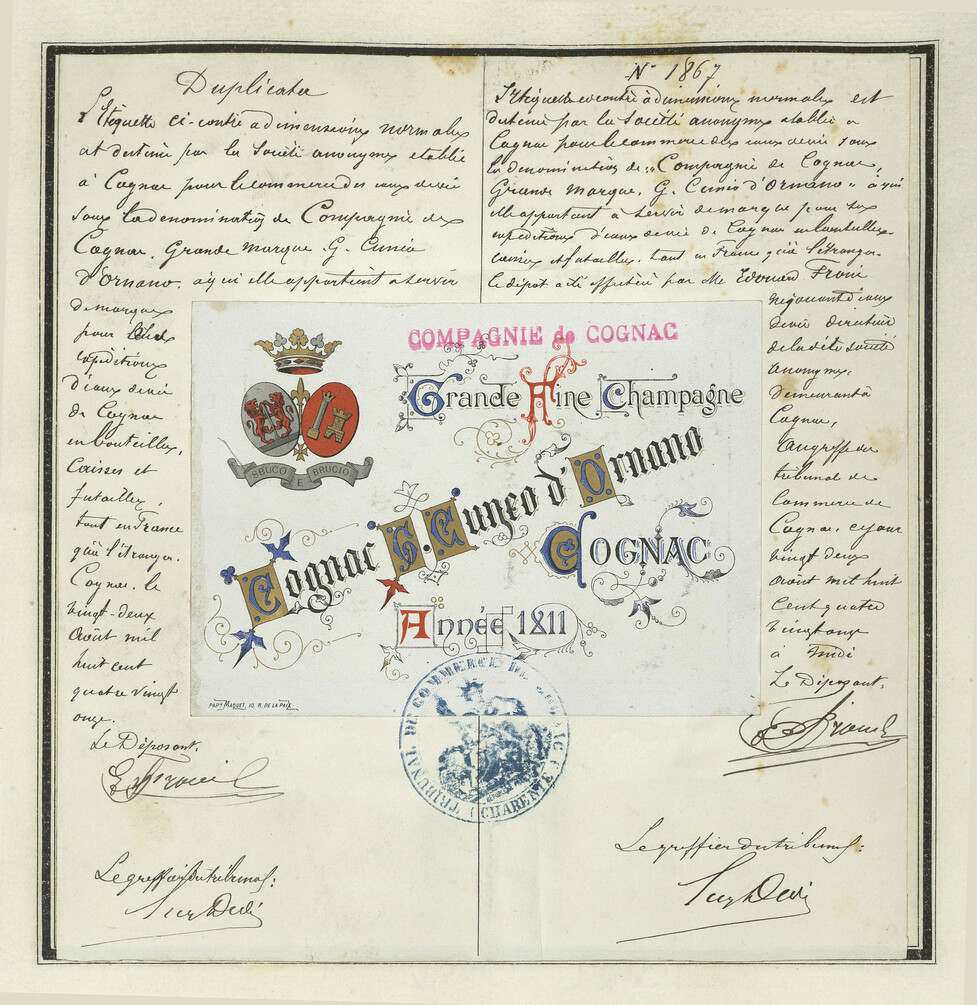 Duplicata
L'Etiquette ci-contre a dimensions normales
est destinée par la Société anonyme etablie
à Cognac pour le commerce des eaux de vie
sous la denomination de Compagnie de
Cognac. Grande marque. G. Cuneo
d'Ornano. à qui elle appartient a servir
de marque
pour
expéditions
d'eaux de vie
de Cognac
en bouteilles,
Caisses et
futailles,
tant en France
qu'à l'étranger.
Cognac. le
vingt-deux
Août mil
huit cent
quatre vingt
onze.
Le Déposant.
Le greffier du tribunal:
N° 1867
L'Etiquette ci contre à dimensions normales est
destinée par la Société anonyme etablie a
Cognac pour le commerce des eaux de vie sous
la denomination de „Compagnie de Cognac,
Grande marque. G. Cuneo d'Ornano" à qui
elle appartient à servir de marque pour ses
expéditions d'eaux de vie de Cognac en bouteilles
caisses et futailles, tant en France qu'à l'étranger.
le dépot a été effectué par Mr Edouard
négociant d'eaux
de vie directeur
de la dite société
Anonyme.
demeurant à
Cognac,
au greffe du
tribunal de
Commerce de
Cognac, ce jour
vingt deux
août mil huit
cent quatre
vingt onze
à midi
Le Déposant.
Le greffier du tribunal:
COMPAGNIE de COGNAC
Grande Fine Champagne
SBUCO E BRUCIO
Cognac G. Cuneo d'Ornano
COGNAC
Année 1811
PAPie MAQUET, 10, R. DE LA PAIX
TRIBUNAL DU COMMERCE DE COGNAC (CHARENTE)